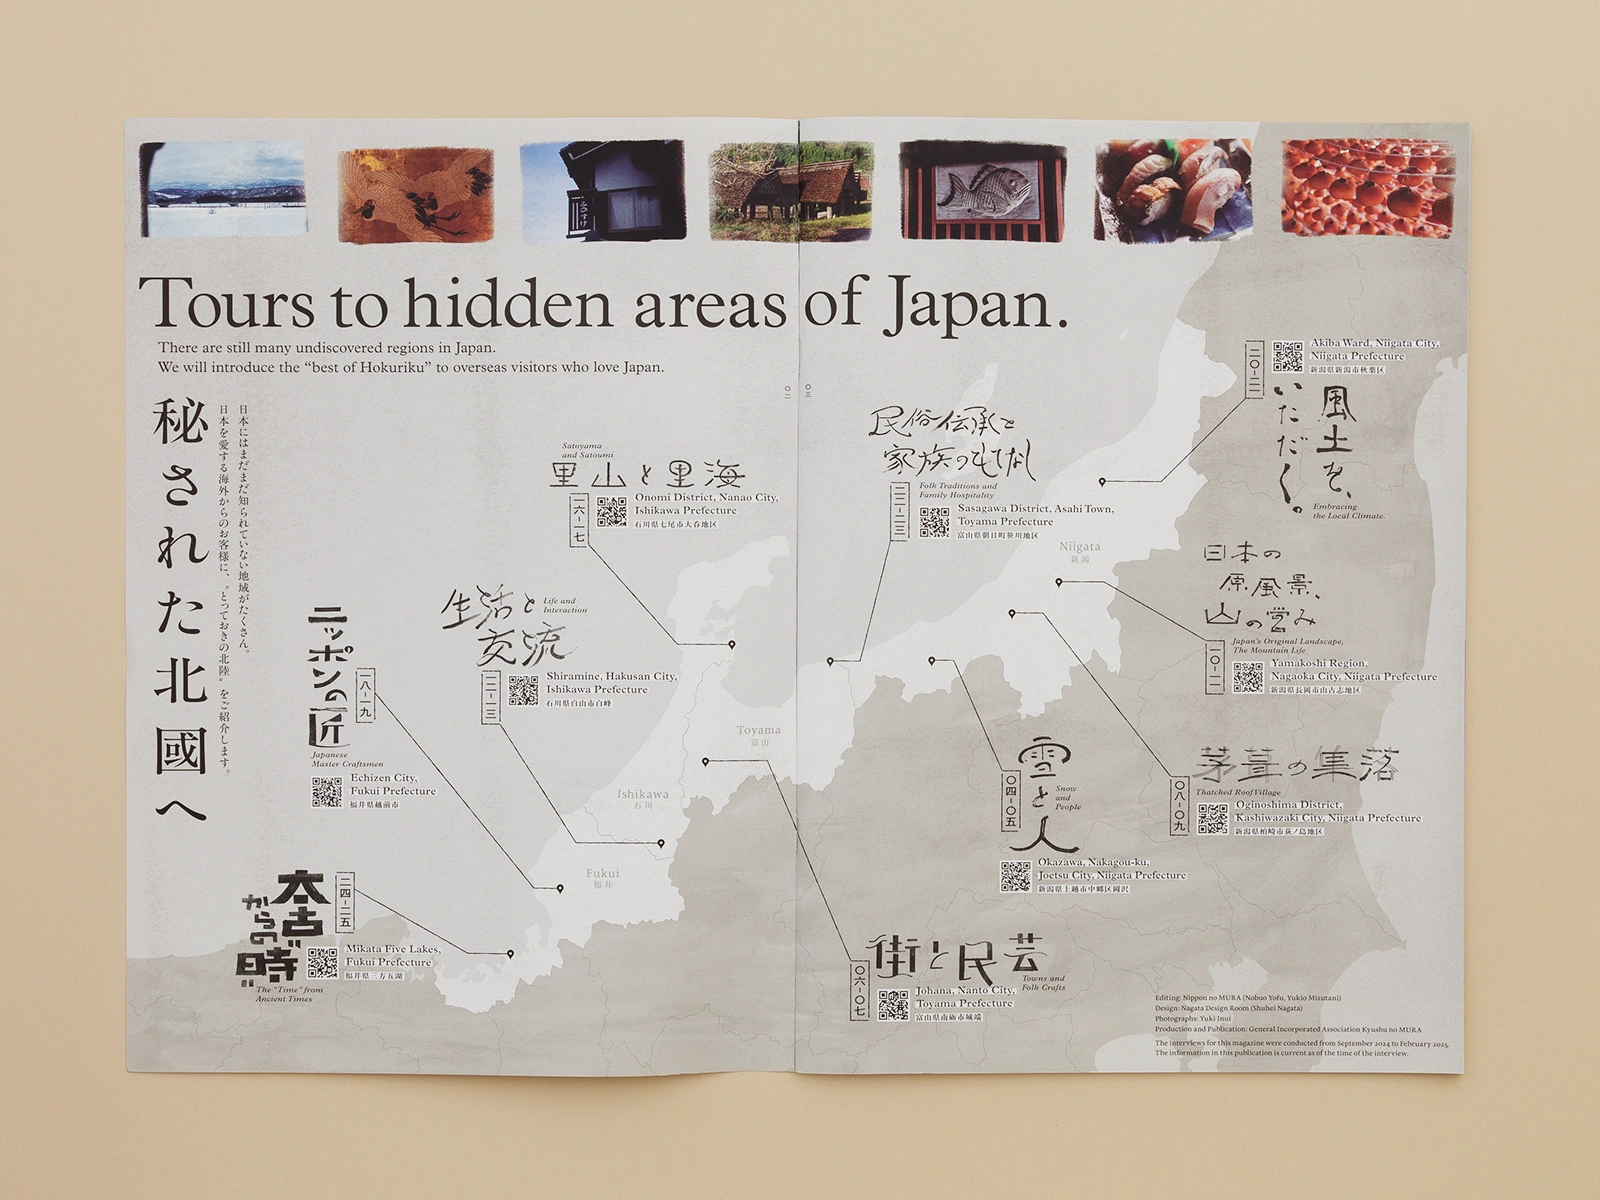 Tours to hidden areas of Japan.
There are still many undiscovered regions in Japan.
We will introduce the “best of Hokuriku” to overseas visitors who love Japan.
秘された北國へ
日本にはまだまだ知られていない地域がたくさん。
日本を愛する海外からのお客様に、“とっておきの北陸”をご紹介します。
〇二
〇三
Satoyama
and Satoumi
里山と里海
一六-一七
Onomi District, Nanao City,
Ishikawa Prefecture
石川県七尾市大呑地区
生活と
交流
Life and
Interaction
一二-一三
Shiramine, Hakusan City,
Ishikawa Prefecture
石川県白山市白峰
ニッポンの匠
一八-一九
Japanese
Master Craftsmen
Echizen City,
Fukui Prefecture
福井県越前市
太古
からの
時
二四-二五
Mikata Five Lakes,
Fukui Prefecture
福井県三方五湖
The “Time” from
Ancient Times
Toyama
富山
Ishikawa
石川
Fukui
福井
Niigata
新潟
民俗伝承と
家族のもてなし
Folk Traditions and
Family Hospitality
二二-二三
Sasagawa District, Asahi Town,
Toyama Prefecture
富山県朝日町笹川地区
二〇-二一
Akiba Ward, Niigata City,
Niigata Prefecture
新潟県新潟市秋葉区
風土を、
いただく。
Embracing
the Local Climate.
日本の
原風景、
山の営み
Japan's Original Landscape,
The Mountain Life
一〇-一一
Yamakoshi Region,
Nagaoka City, Niigata Prefecture
新潟県長岡市山古志地区
茅葺の集落
Thatched Roof Village
〇八-〇九
Oginoshima District,
Kashiwazaki City, Niigata Prefecture
新潟県柏崎市荻ノ島地区
雪と人
Snow
and
People
〇四-〇五
Okazawa, Nakagou-ku,
Joetsu City, Niigata Prefecture
新潟県上越市中郷区岡沢
街と民芸
Towns and
Folk Crafts
〇六-〇七
Johana, Nanto City,
Toyama Prefecture
富山県南砺市城端
Editing: Nippon no MURA (Nobuo Yofu, Yukio Mizutani)
Design: Nagata Design Room (Shuhei Nagata)
Photographs: Yuki Inui
Production and Publication: General Incorporated Association Kyushu no MURA
The interviews for this magazine were conducted from September 2024 to February 2025.
The information in this publication is current as of the time of the interview.